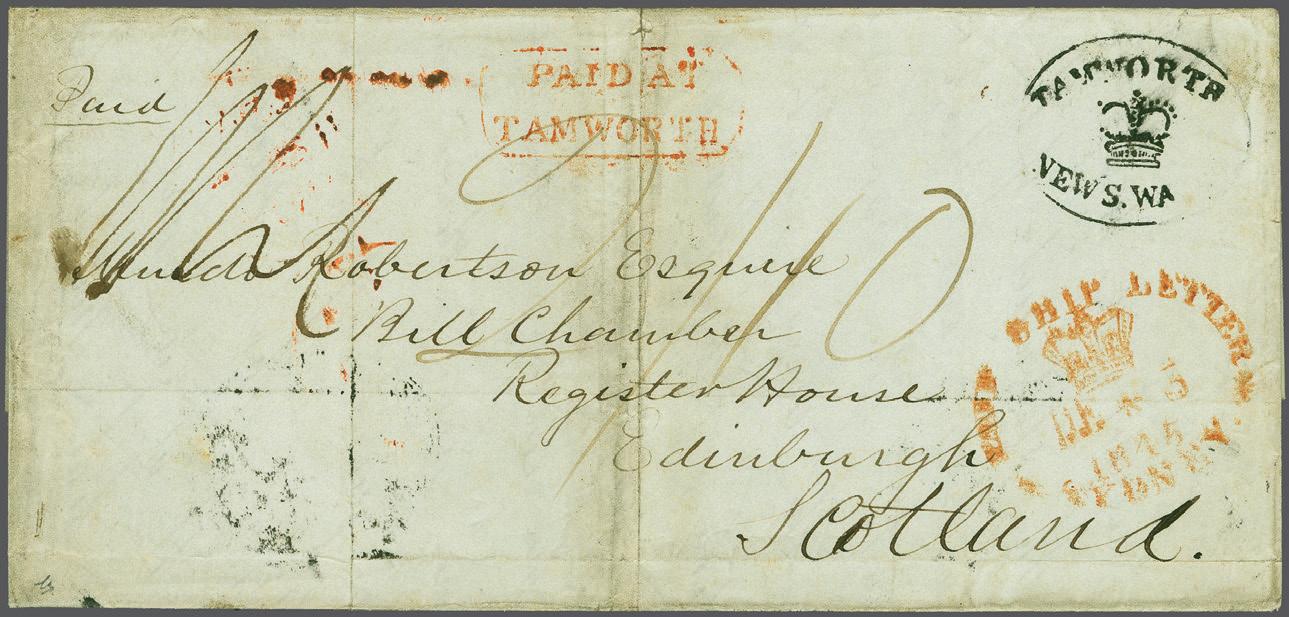 Paid
PAID AT
TAMWORTH
TAMWORTH
NEW S. WA
2/10
Robertson Esquire
Bill Chamber
Register House
Edinburgh
Scotland.
SHIP LETTER
DE * 5
1845
SYDNEY.